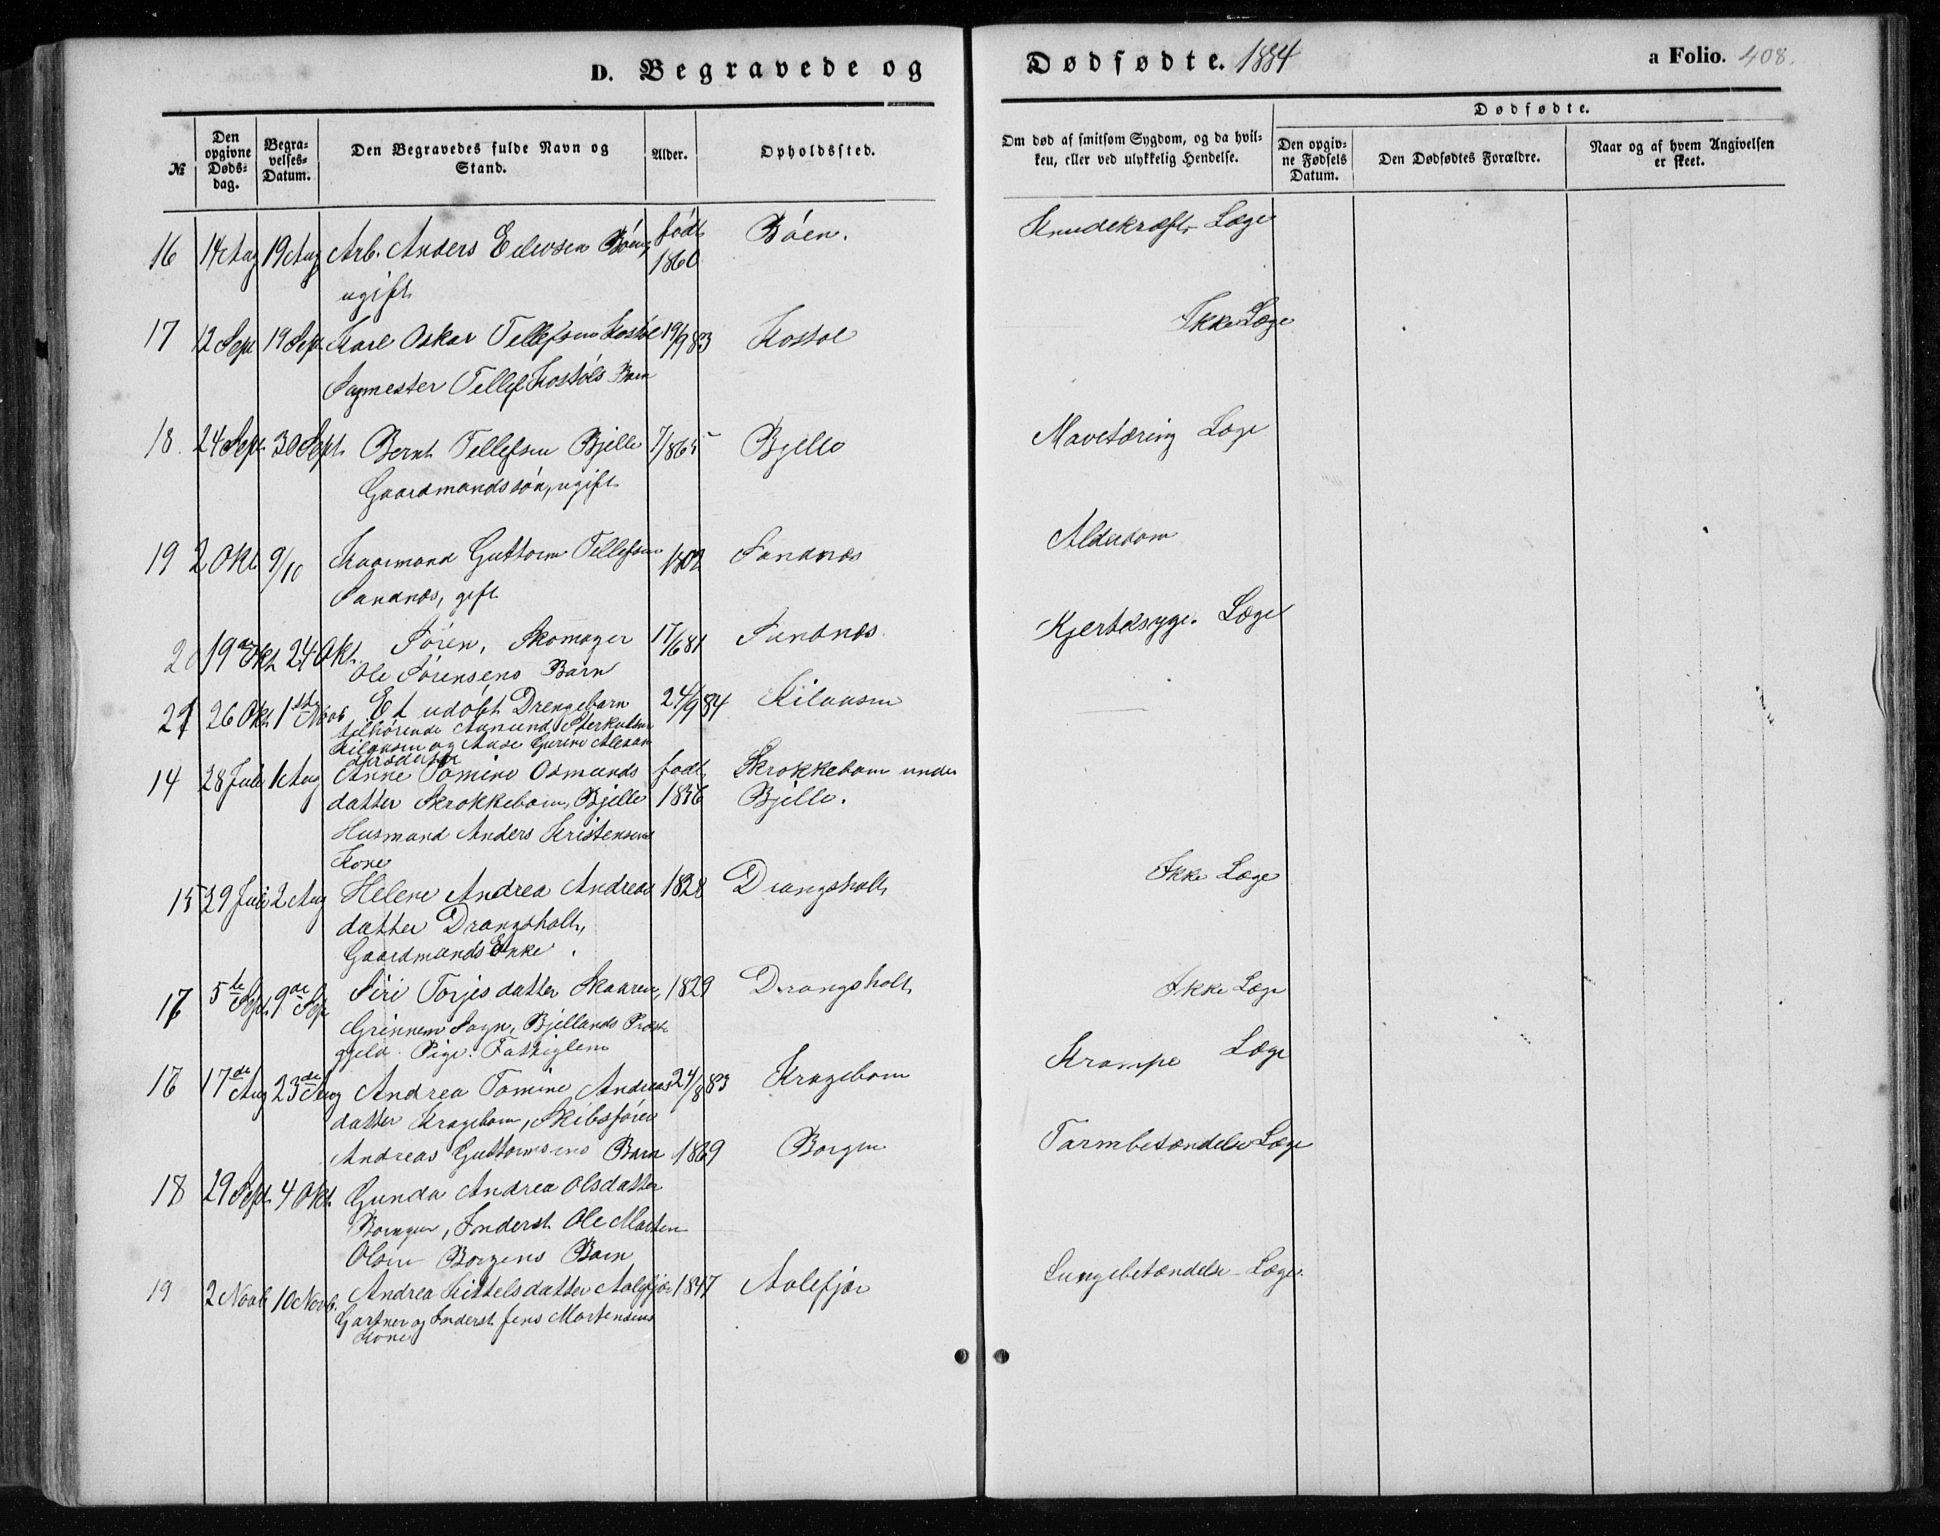 D. Begravede og Dødfødte. 1884
a Folio. 408.
№
Den opgivne Døds-dag.
Begra-velses-Datum.
Den Begravedes fulde Navn og Stand.
Alder.
Opholdssted.
Om død af smitsom Sygdom, og da hvil-ken, eller ved ulykkelig Hendelse.
Dødfødte.
Den opgiv-ne Fødsels Datum.
Den Dødfødtes Forældre.
Naar og af hvem Angivelsen er skeet.
16 14 Aug 19 Aug Arb. Anders Eilevsen Bøen, født Bøen. Knudekræft, Læge
ugift 1860
17 12 Sept 19 Sept Karl Oskar Tellefsen Kostøl 19/9 83 Kostøl Ikke Læge
Sagmester Tellef Kostøls Barn
18. 24 Sept. 30 Sept. Bernt Tellefsen Bjelle 7/865 Bjelle Mavetæring Læge
Gaardmandssøn, ugift
19 2 Okt. 9/10 Kaarmand Guttorm Tellefsen 1802 Sandnæs Alderdom
Sandnæs, gift
20 19de Okt. 24 Okt. Søren, Skomager 17/6 81 Sandnæs. Kjertelsyge. Læge
Ole Sørensens Barn
21 26 Okt 1ste Novb Et udøbt Drengebarn 24/9 84 Kilaasen
tilhørende Aanund
Kilaasen og Aase Gurine
14 28 Juli 1 Aug Anne Tomine Osmunds født Skrokkebom under
datter Skrokkebom, Bjelle 1836 Bjelle.
Husmand Anders Kristensens
Kone
15 29 Juli 2 Aug Helene Andrea Andreas 1828 Drangsholt Ikke Læge
datter Drangsholt,
Gaardmands Enke.
17 5te Sept 9de Sept Siri Torjesdatter Skaaren, 1829 Drangsholt Ikke Læge
Grinnem Sogn, Bjellands Præste
gjeld. Pige. Fattiglem
16 17de Aug 23de Aug Andrea Tomine Andreas 24/8 83 Kragebom Krampe Læge
datter Kragebom, Skibsfører
Andreas Guttormsens Barn
18 29 Sept. 4 Okt. Gunda Andrea Olsdatter 1869 Borgen Tarmbetændelse Læge
Borgen, Inderst Ole Martin
Olsen Borgens Barn
19 2 Novb 10 Novb. Andrea Kittelsdatter Aalefjær 1847 Aalefjær Lungebetændelse - Læge.
Gartner og Inderst Jens Mortensens
Kone